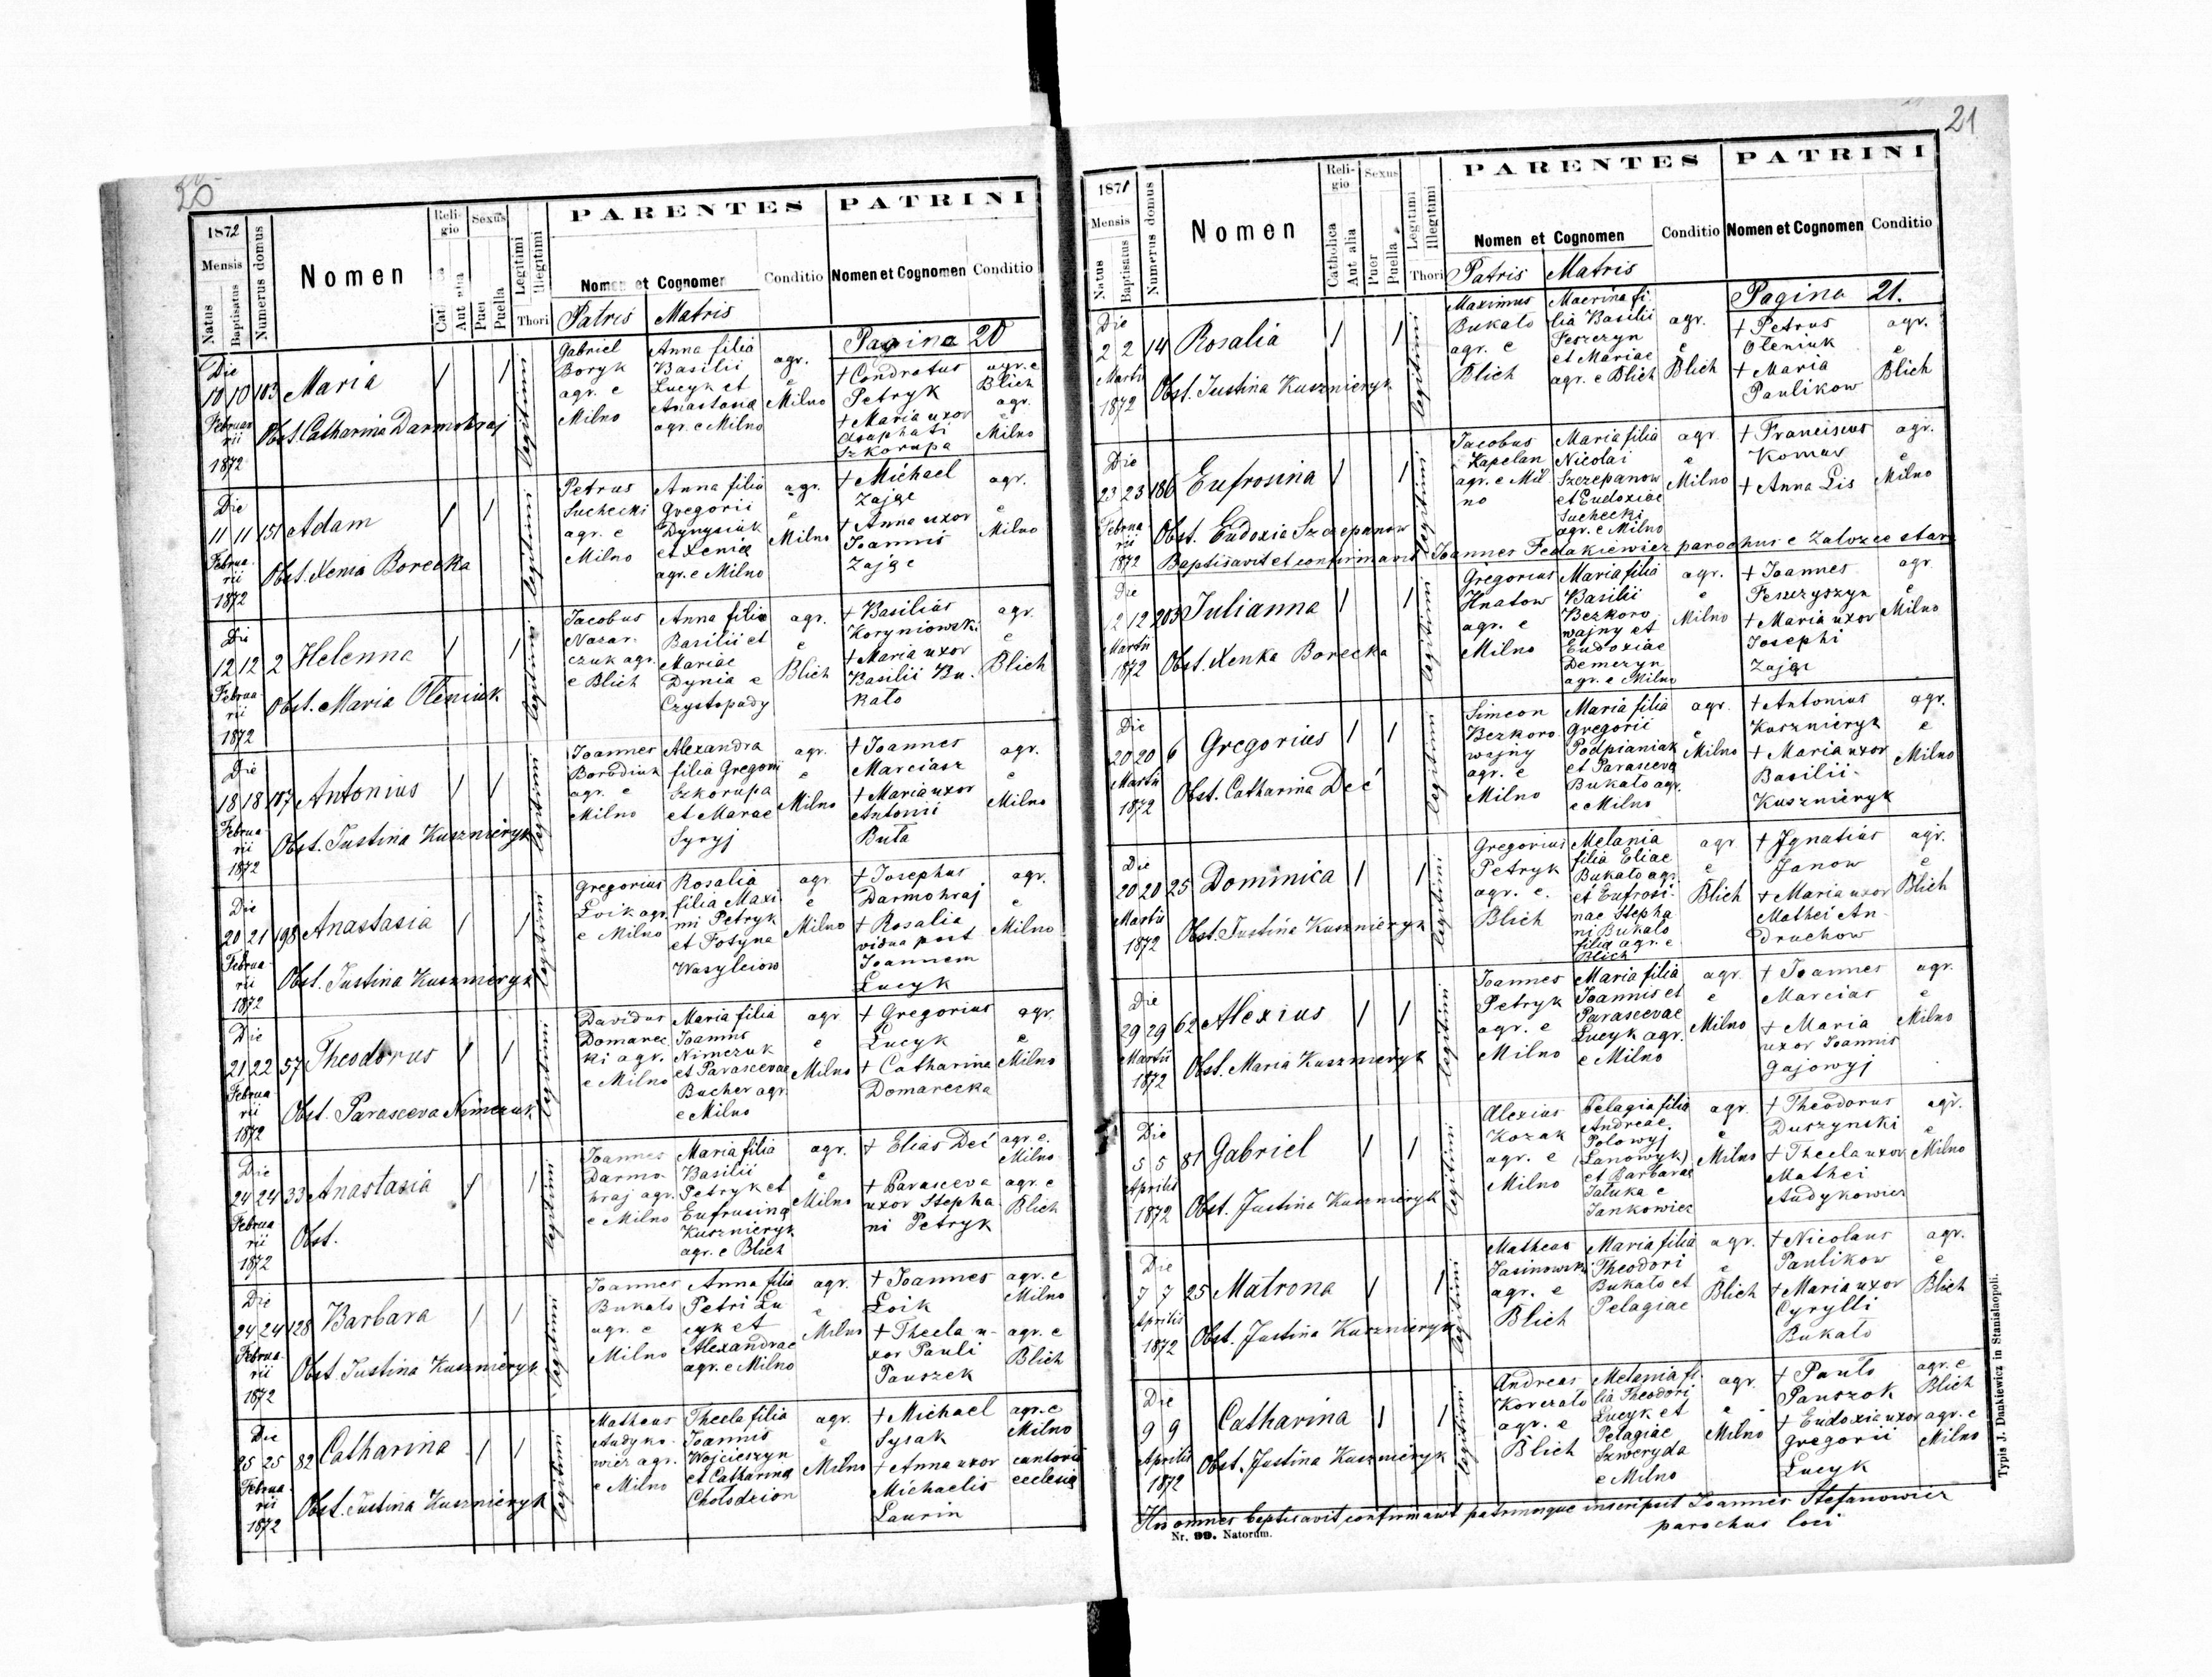 20
1872
Mensis
Natus
Baptisatus
Numerus domus
Nomen
Religio
Aut alia
Sexus
Puer
Puella
Legitimi
Illegitimi
Thori
PARENTES
Nomen et Cognomen
Patris Matris
Conditio
PATRINI
Nomen et Cognomen Conditio
Pagina 20
Die
10 10 103 Maria
Februa
rii
1872
Obst. Catharina Darmohraj
legitimi
Gabriel
Boryk
agr. e
Milno
Anna filia
Basilii
Lucyk et
Anastasia
agr. e Milno
agr.
e
Milno
† Condratus
Petryk
† Maria uxor
Asaphati
Szkorupa
agr. e
Blich
agr.
e
Milno
Die
11 11 151 Adam
Februa
rii
1872
Obst. Xenia Borecka
legitimi
Petrus
Suchecki
agr. e
Milno
Anna filia
Gregorii
Dynysiuk
et Xenia
agr. e Milno
agr.
e
Milno
† Michael
Zając
† Anna uxor
Joannis
Zając
agr.
e
Milno
Die
12 12 2 Helenna
Februa
rii
1872
Obst. Maria Oleniuk
legitimi
Jacobus
Nazar
czuk agr.
e Blich
Anna filia
Basilii et
Mariae
Dynia e
Czystopady
agr.
e
Blich
† Basilius
Koryniowski
† Maria uxor
Basilii Bu
kato
agr.
e
Blich
Die
18 18 187 Antonius
Februa
rii
1872
Obst. Justina Kusznieryk
legitimi
Joannes
Borodiuk
agr. e
Milno
Alexandra
filia Gregorii
Szkorupa
et Marae
Syryj
agr.
e
Milno
† Joannes
Marciasz
† Maria uxor
Antonii
Buta
agr.
e
Milno
Die
20 21 198 Anastasia
Februa
rii
1872
Obst. Justina Kusznieryk
legitimi
Gregorius
Loik agr.
e Milno
Rosalia
filia Maxi
mi Petryk
et Fotyna
Wasylciow
agr
e
Milno
† Josephus
Darmohraj
† Rosalia
vidua post
Joannem
Lucyk
agr.
e
Milno
Die
21 22 57 Theodorus
Februa
rii
1872
Obst. Parasceva Nimczuk
legitimi
Davidus
Domarec
ki agr.
e Milno
Maria filia
Joannis
Nimczuk
et Parascevae
Bucher agr.
e Milno
agr
e
Milno
† Gregorius
Lucyk
† Catharina
Domareczka
agr.
e
Milno
Die
24 24 33 Anastasia
Februa
rii
1872
Obst.
legitimi
Joannes
Darmo
hraj agr.
e Milno
Maria filia
Basilii
Petryk et
Eufrusina
Kusznieryk
agr. e Blich
agr.
e
Milno
† Elias Deć
† Parasceva
uxor Stepha
ni Petryk
agr. e.
Milno
agr. e
Blich
Die
24 24 128 Barbara
Februa
rii
1872
Obst. Justina Kusznieryk
legitimi
Joannes
Bukato
agr. e
Milno
Anna filia
Petri Lu
cyk et
Alexandrae
agr. e Milno
agr.
e
Milno
† Joannes
Loik
† Thecla u-
xor Pauli
Pauszek
agr. e
Milno
agr. e
Blich
Die
25 25 82 Catharina
Februa
rii
1872
Obst. Justina Kusznieryk
legitimi
Matheus
Audyko
wicz agr.
e Milno
Thecla filia
Joannis
Wojcieszyn
et Catharina
Chołodzion
agr.
e
Milno
† Michael
Sysak
† Anna uxor
Michaelis
Laurin
agr. e
Milno
cantoris
ecclesia
21
1871
Mensis
Natus
Baptisatus
Numerus domus
Nomen
Religio
Catholica
Aut alia
Sexus
Puer
Puella
Legitimi
Illegitimi
Thori
PARENTES
Nomen et Cognomen
Patris Matris
Conditio
PATRINI
Nomen et Cognomen Conditio
Pagina 21.
Die
2 2 14 Rosalia
Martii
1872
Obst. Justina Kusznieryk
legitimi
Maximus
Bukato
agr. e
Blich
Macrina fi
lia Basilii
Feszczyn
et Mariae
agr. e Blich
agr.
e
Blich
† Petrus
Oleniuk
† Maria
Paulikow
agr.
e
Blich
Die
23 23 186 Eufrosina
Februa
rii
1872
Obst. Eudoxia Szczepanow
Baptisavit et confirmavit Joannes Fedakiewicz parochus e Zalozce stare
legitimi
Jacobus
Kapelan
agr. e Mil
no
Maria filia
Nicolai
Szczepanow
et Eudoxiae
Suchecki
agr. e Milno
agr.
e
Milno
† Franciscus
Komar
† Anna Lis
agr.
e
Milno
Die
12 12 203 Julianna
Martii
1872
Obst. Xenka Borecka
legitimi
Gregorius
Hnatow
agr. e
Milno
Maria filia
Basilii
Bezkoro
wajny et
Eudoxiae
Demczyn
agr. e Milno
agr.
e
Milno
† Joannes
Feszczyszyn
† Maria uxor
Josephi
Zając
agr
e
Milno
Die
20 20 6 Gregorius
Martii
1872
Obst. Catharina Deć
legitimi
Simeon
Bezkoro
wajny
agr. e
Milno
Maria filia
Gregorii
Podpianiak
et Parasceva
Bukato agr.
e Milno
agr.
e
Milno
† Antonius
Kusznieryk
† Maria uxor
Basilii
Kusznieryk
agr.
e
Milno
Die
20 20 25 Dominica
Martii
1872
Obst. Justina Kusznieryk
legitimi
Gregorius
Petryk
agr. e.
Blich
Melania
filia Eliae
Bukato agr.
et Eufrosi
nae Stepha
ni Bukato
filia agr. e
Blich
agr
e
Blich
† Ignatius
Janow
† Maria uxor
Mathei An
druchow
agr.
e
Blich
Die
29 29 62 Alexius
Martii
1872
Obst. Maria Kusznieryk
legitimi
Joannes
Petryk
agr. e
Milno
Maria filia
Joannis et
Parascevae
Lucyk agr.
e Milno
agr.
e
Milno
† Joannes
Marcias
† Maria
uxor Joannis
Gajowyj
agr.
e
Milno
Die
5 5 81 Gabriel
Aprilis
1872
Obst. Justina Kusznieryk
legitimi
Alexius
Kozak
agr. e
Milno
Pelagia filia
Andreae
Polowyj
(Lanowyk)
et Barbarae
Jatuka e
Jankowice
agr.
e
Milno
† Theodorus
Duszynski
† Thecla uxor
Mathei
Audykowicz
agr.
e
Milno
Die
7 7 25 Matrona
Aprilis
1872
Obst. Justina Kusznieryk
legitimi
Matheus
Jasinowski
agr. e
Blich
Maria filia
Theodori
Bukato et
Pelagiae
agr.
e
Blich
† Nicolaus
Paulikow
† Maria uxor
Cyrylli
Bukato
agr.
e
Blich
Die
9 9 Catharina
Aprilis
1872
Obst. Justina Kusznieryk
legitimi
Andreas
Koverato
agr. e
Blich
Melania fi
lia Theodori
Lucyk et
Pelagiae
Szweryda
e Milno
agr.
e
Milno
† Pauls
Pauszok
† Eudoxia uxor
Gregorii
Lucyk
agr. e
Blich
agr. e
Milno
Hos omnes baptisavit, confirmavit patrinosque inscripsit Joannes Stefanowicz
parochus loci
Nr. 99. Natorum.
Typis J. Dankiewicz in Stanislaopoli.